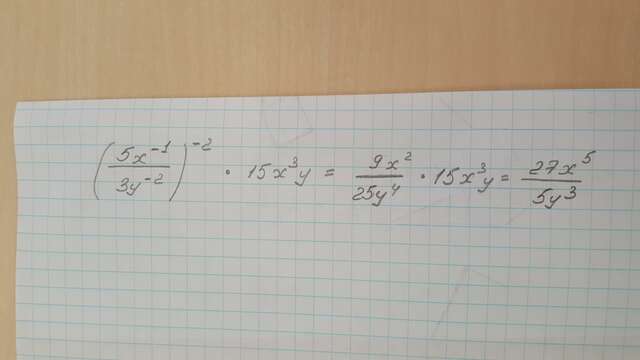 (5x⁻¹/3y⁻²)⁻² · 15x³y = 9x²/25y⁴ · 15x³y = 27x⁵/5y³